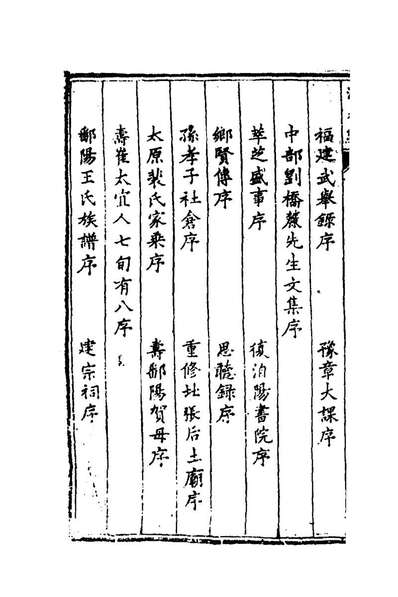 福建武舉錄序　豫章大課序
中部劉橋麓先生文集序
萃芝盛事序　復泊陽書院序
鄉賢傳序　思錄序
孫孝子社倉序　重修張后土廟序
太原裴氏家乘序　壽鄱陽賀母序
壽崔太宜人七旬有八序
鄱陽王氏族譜序　建宗祠序